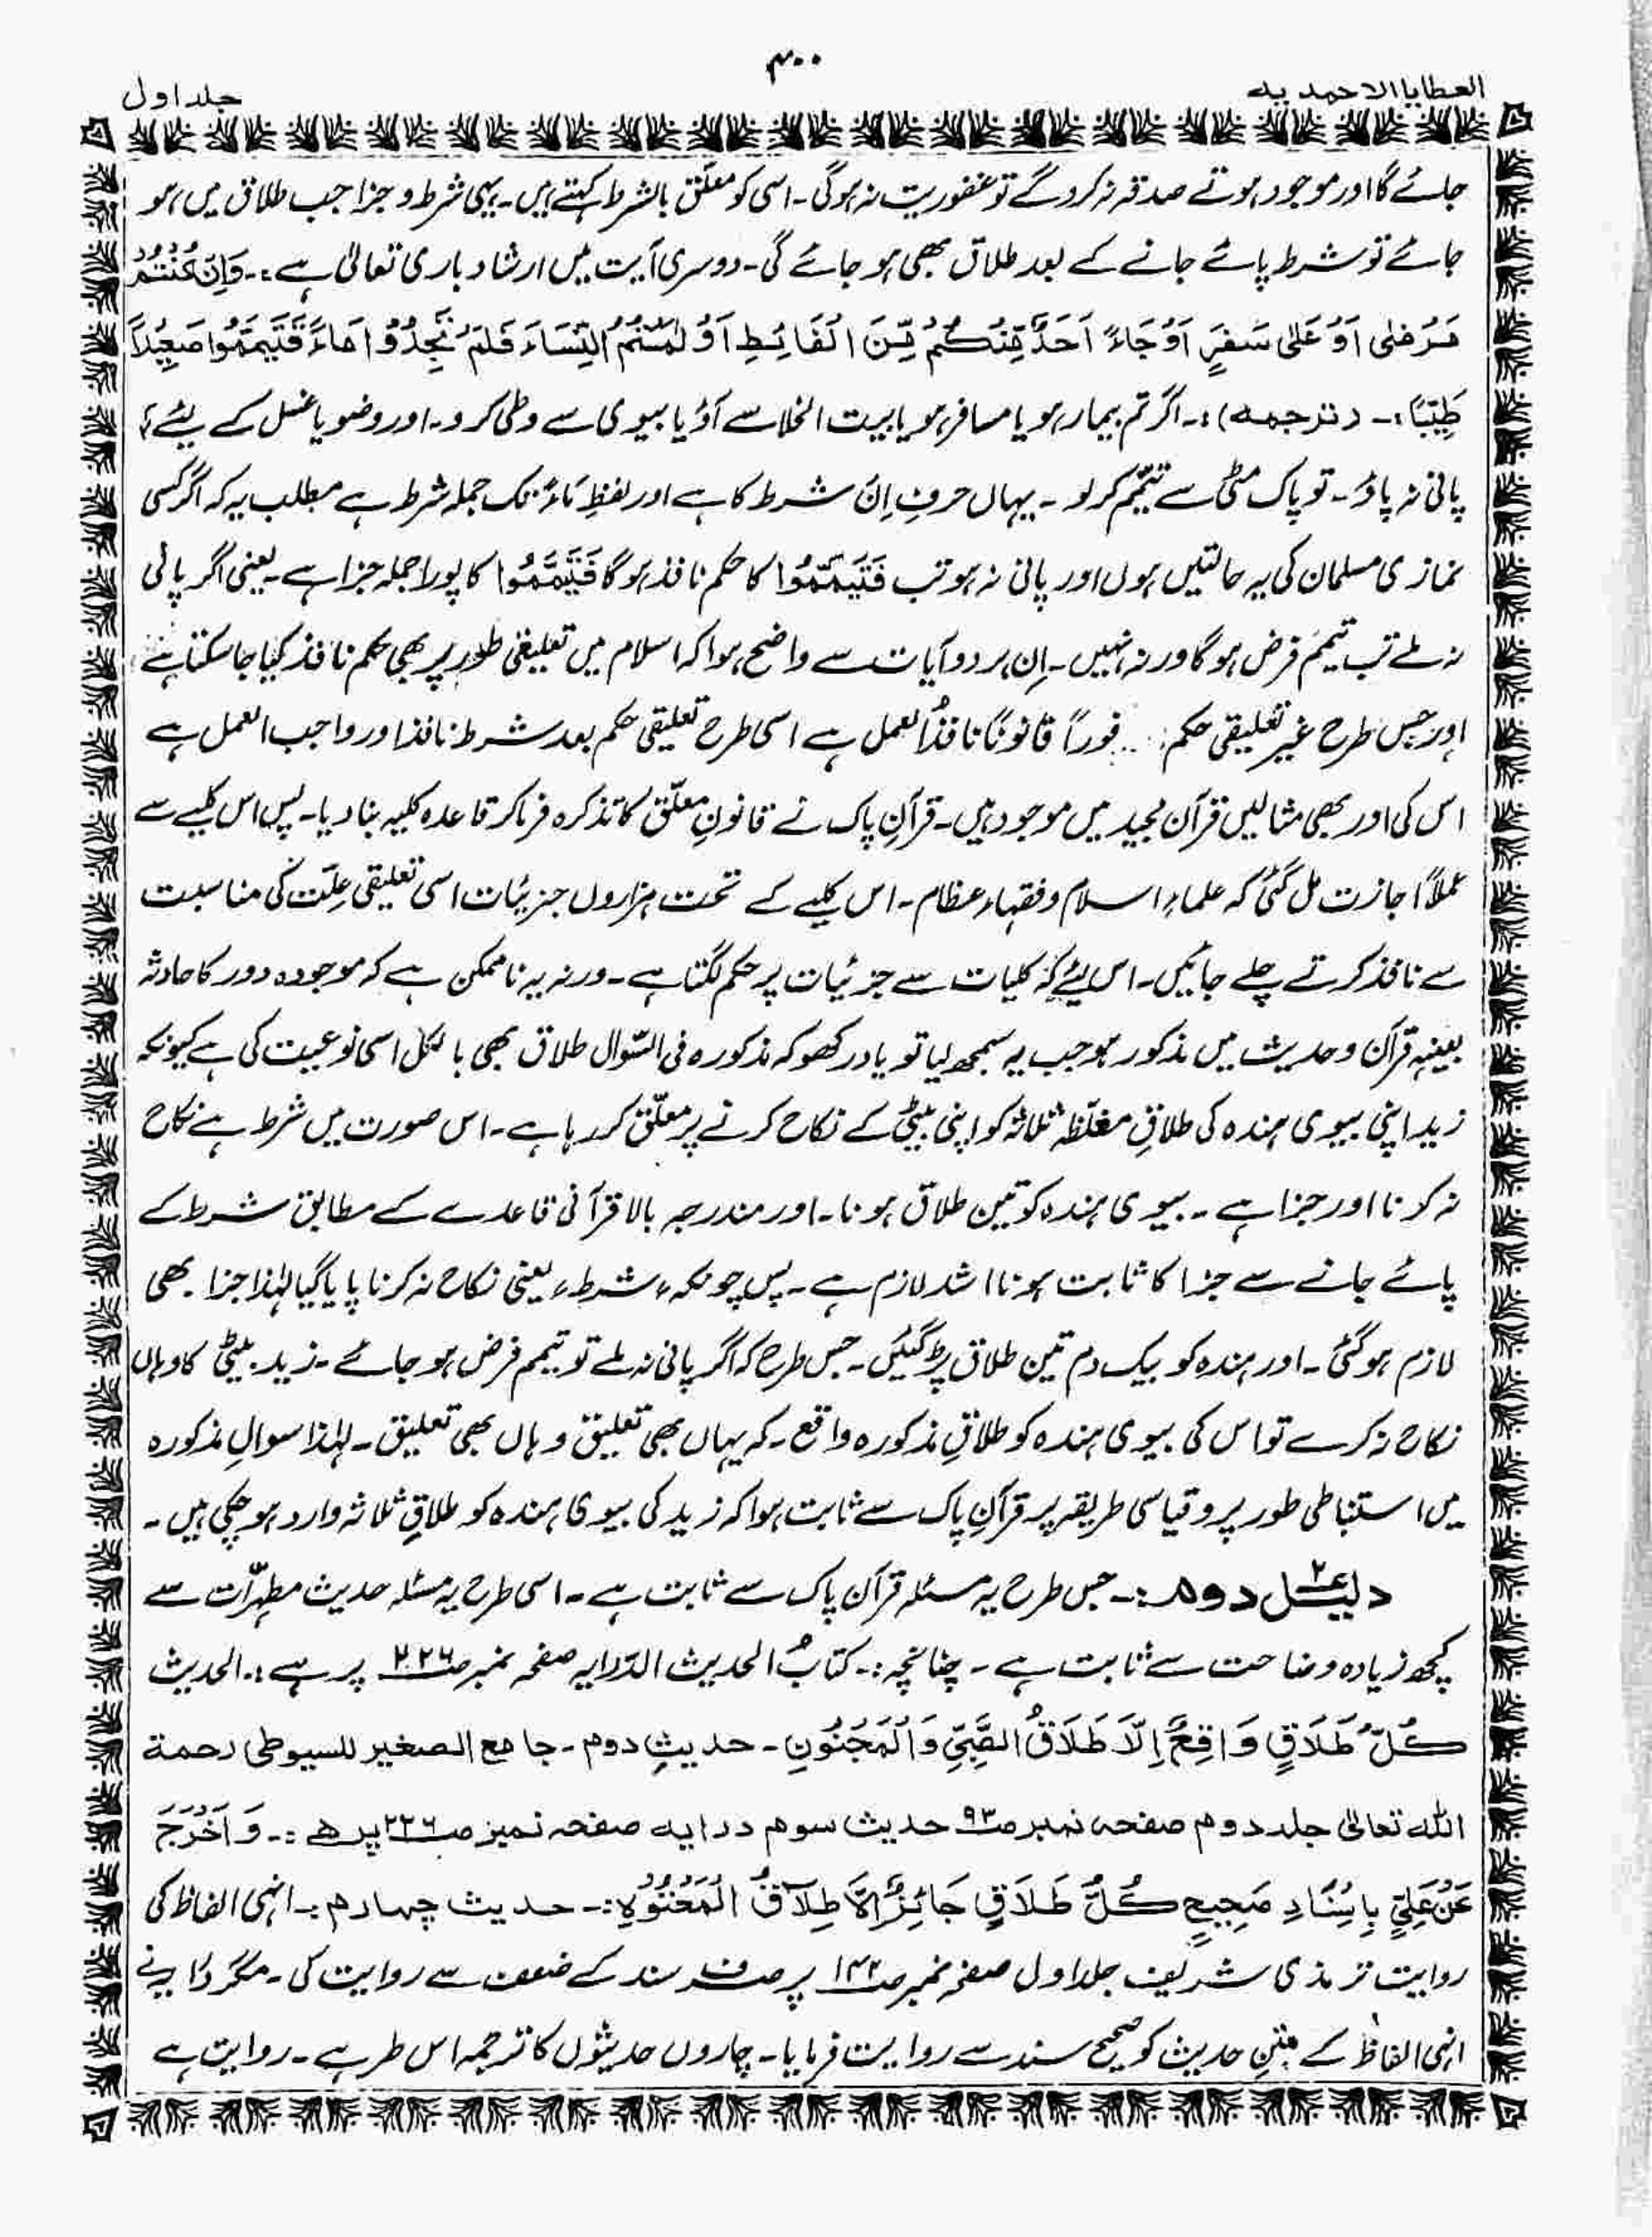 ۳۰۰
العطایا الاحمدیہ
جلد اول
جائے گا اور موجود ہوتے صدقہ نہ کرو گے تو غفوریت نہ ہوگی۔ اسی کو معلّق بالشرط کہتے ہیں۔ یہی شرط و جزا جب طلاق میں ہو
جائے تو شرط پائے جانے کے بعد طلاق بھی ہو جائے گی۔ دوسری آیت میں ارشاد باری تعالیٰ ہے :۔ وَاِنْ كُنْتُمْ
مَرْضٰى اَوْ عَلٰى سَفَرٍ اَوْ جَاءَ اَحَدٌ مِّنْكُمْ مِّنَ الْغَائِطِ اَوْ لٰمَسْتُمُ النِّسَاءَ فَلَمْ تَجِدُوْا مَاءً فَتَيَمَّمُوا صَعِيْدًا
طَيِّبًا :۔ (ترجمہ) :۔ اگر تم بیمار ہو یا مسافر ہو یا بیت الخلا سے آؤ یا بیوی سے وطی کرو۔ اور وضو یا غسل کے لئے
پانی نہ پاؤ۔ تو پاک مٹی سے تیمّم کر لو ۔ یہاں حرفِ اِنْ شرط کا ہے اور لفظِ مَاءً تک جملہ شرط ہے مطلب یہ کہ اگر کسی
نمازی مسلمان کی یہ حالتیں ہوں اور پانی نہ ہو تب فَتَيَمَّمُوْا کا حکم نافذ ہوگا فَتَيَمَّمُوا کا پورا جملہ جزا ہے۔ یعنی اگر پانی
نہ ملے تب تیمم فرض ہوگا ورنہ نہیں۔ اِن ہر دو آیات سے واضح ہوا کہ اسلام میں تعلیقی طور پر بھی حکم نافذ کیا جا سکتا ہے
اور جس طرح غیر تعلیقی حکم فوراً قانوناً نافذُ العمل ہے اسی طرح تعلیقی حکم بعد شرط نافذ اور واجب العمل ہے
اس کی اور بھی مثالیں قرآن مجید میں موجود ہیں۔ قرآنِ پاک نے قانونِ معلّق کا تذکرہ فرما کر قاعدہ کلیہ بنا دیا۔ پس اس کلیے سے
عملاً اجازت مل گئی کہ علماءِ اسلام و فقہاءِ عظام۔ اس کلیے کے تحت ہزاروں جزئیات اسی تعلیقی علّت کی مناسبت
سے نافذ کرتے چلے جائیں۔ اس لئے کہ کلیات سے جزئیات پر حکم لگتا ہے۔ ورنہ یہ ناممکن ہے کہ موجودہ دور کا حادثہ
بعینہٖ قرآن و حدیث میں مذکور ہو جب یہ سمجھ لیا تو یاد رکھو کہ مذکورہ فی السّوال طلاق بھی بالکل اسی نوعیت کی ہے کیونکہ
زید اپنی بیوی ہندہ کی طلاقِ مغلّظہ ثلاثہ کو اپنی بیٹی کے نکاح کرنے پر معلّق کر رہا ہے۔ اس صورت میں شرط ہے نکاح
نہ کرنا اور جزا ہے ۔ بیوی ہندہ کو تین طلاق ہونا۔ اور مندرجہ بالا قرآنی قاعدے کے مطابق شرط کے
پائے جانے سے جزا کا ثابت ہونا اشد لازم ہے ۔ پس چونکہ، شرط، یعنی نکاح نہ کرنا پایا گیا لہٰذا جزا بھی
لازم ہوگئی ۔ اور ہندہ کو بیک دم تین طلاق پڑ گئیں ۔ جس طرح کہ اگر پانی نہ ملے تو تیمم فرض ہو جائے ۔ زید بیٹی کا وہاں
نکاح نہ کرے تو اس کی بیوی ہندہ کو طلاقِ مذکورہ واقع ۔ کہ یہاں بھی تعلیق وہاں بھی تعلیق ۔ لہٰذا سوالِ مذکورہ
میں استنباطی طور پر و قیاسی طریقہ پر قرآنِ پاک سے ثابت ہوا کہ زید کی بیوی ہندہ کو طلاقِ ثلاثہ وارد ہو چکی ہیں۔
دلیل ۲ دوم :۔ جس طرح یہ مسئلہ قرآن پاک سے ثابت ہے۔ اسی طرح یہ مسئلہ حدیث مطہرّات سے
کچھ زیادہ وضاحت سے ثابت ہے ۔ چنانچہ :۔ کتابُ الحدیث الدّرایہ صفحہ نمبر صـ۲۲۶ پر ہے :۔ الحدیث
كُلُّ طَلَاقٍ وَاقِعٌ اِلَّا طَلَاقُ الصَّبِيِّ وَالْمَجْنُوْنِ ۔ حدیثِ دوم ۔ جامع الصغیر للسیوطی رحمۃ
اللہ تعالیٰ جلد دوم صفحہ نمبر صـ۹۳ حدیث سوم درایہ صفحہ نمبر صـ۲۲۶ پر ہے :۔ وَاَخْرَجَ
عَنْ عَلِيٍّ بِاِسْنَادٍ صَحِيْحٍ كُلُّ طَلَاقٍ جَائِزٌ اِلَّا طَلَاقُ الْمَعْتُوْهِ :۔ حدیث چہارم :۔ انہی الفاظ کی
روایت ترمذی شریف جلد اول صفحہ نمبر صـ۱۴۲ پر صرف سند کے ضعف سے روایت کی ۔ مگر درایہ نے
انہی الفاظ کے متنِ حدیث کو صحیح سند سے روایت فرمایا۔ چاروں حدیثوں کا ترجمہ اس طرح ہے ۔ روایت ہے